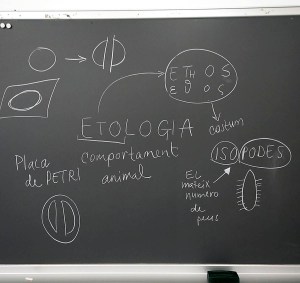 ETHOS
εθος
ETOLOGIA
costum
comportament
animal
Placa
de PETRI
ISOPODES
EL
mateix
numero
de
peus